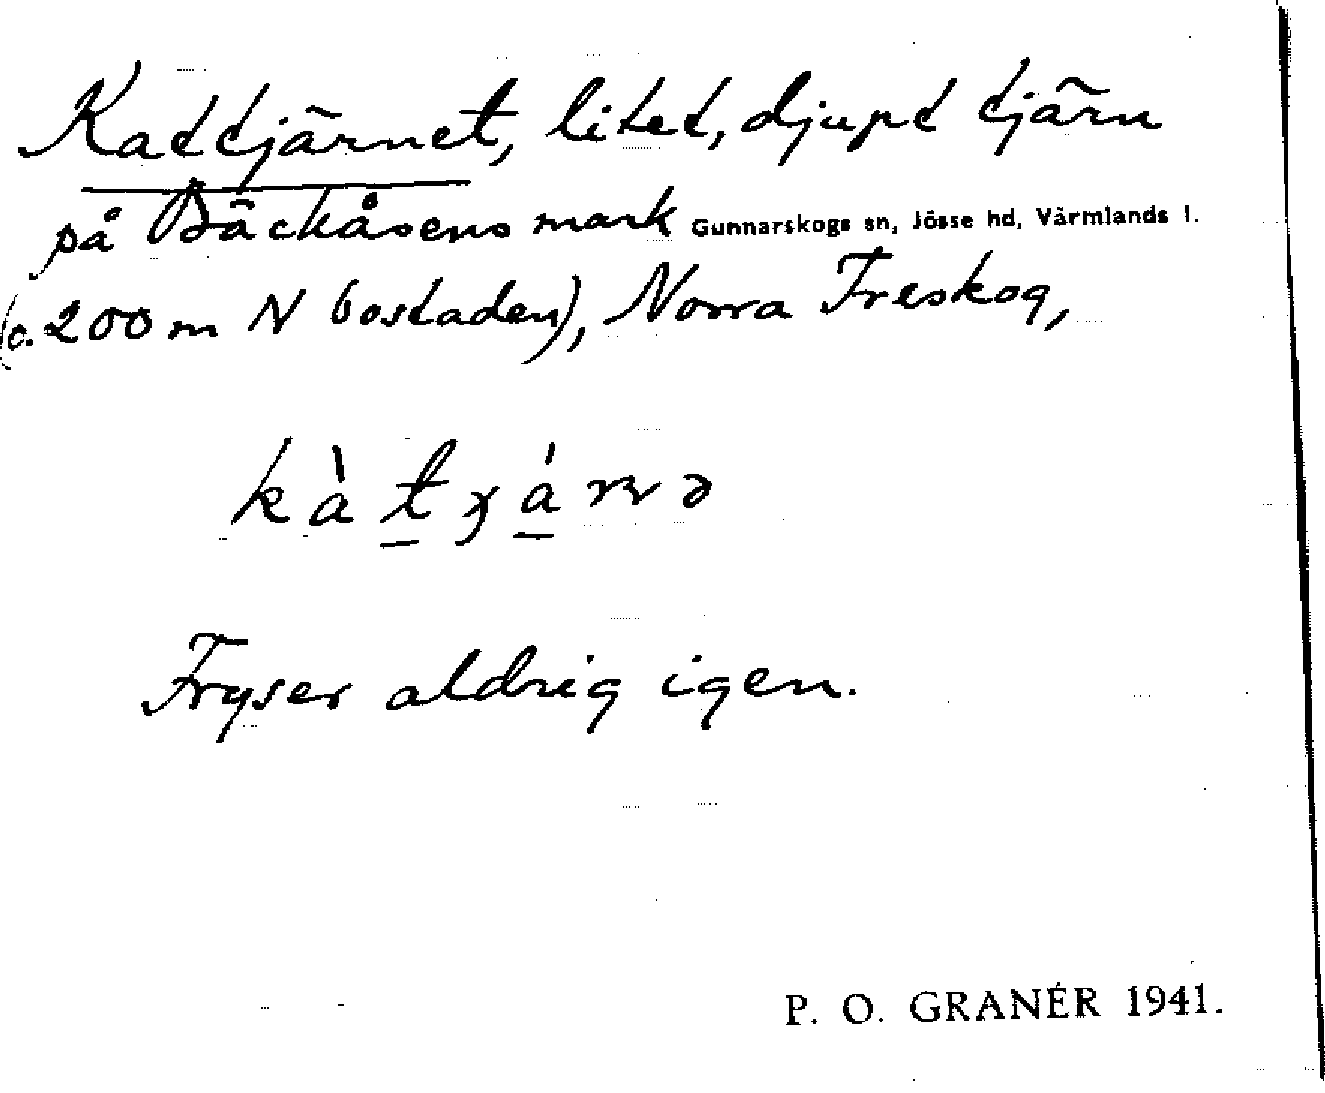 Kattjärnet, litet, djupt tjärn
på Bäckåsens mark Gunnarskogs sn, Jösse hd, Värmlands l.
(c. 200 m N bostaden), Norra Treskog,
Fryser aldrig igen.
P. O. GRANÉR 1941.